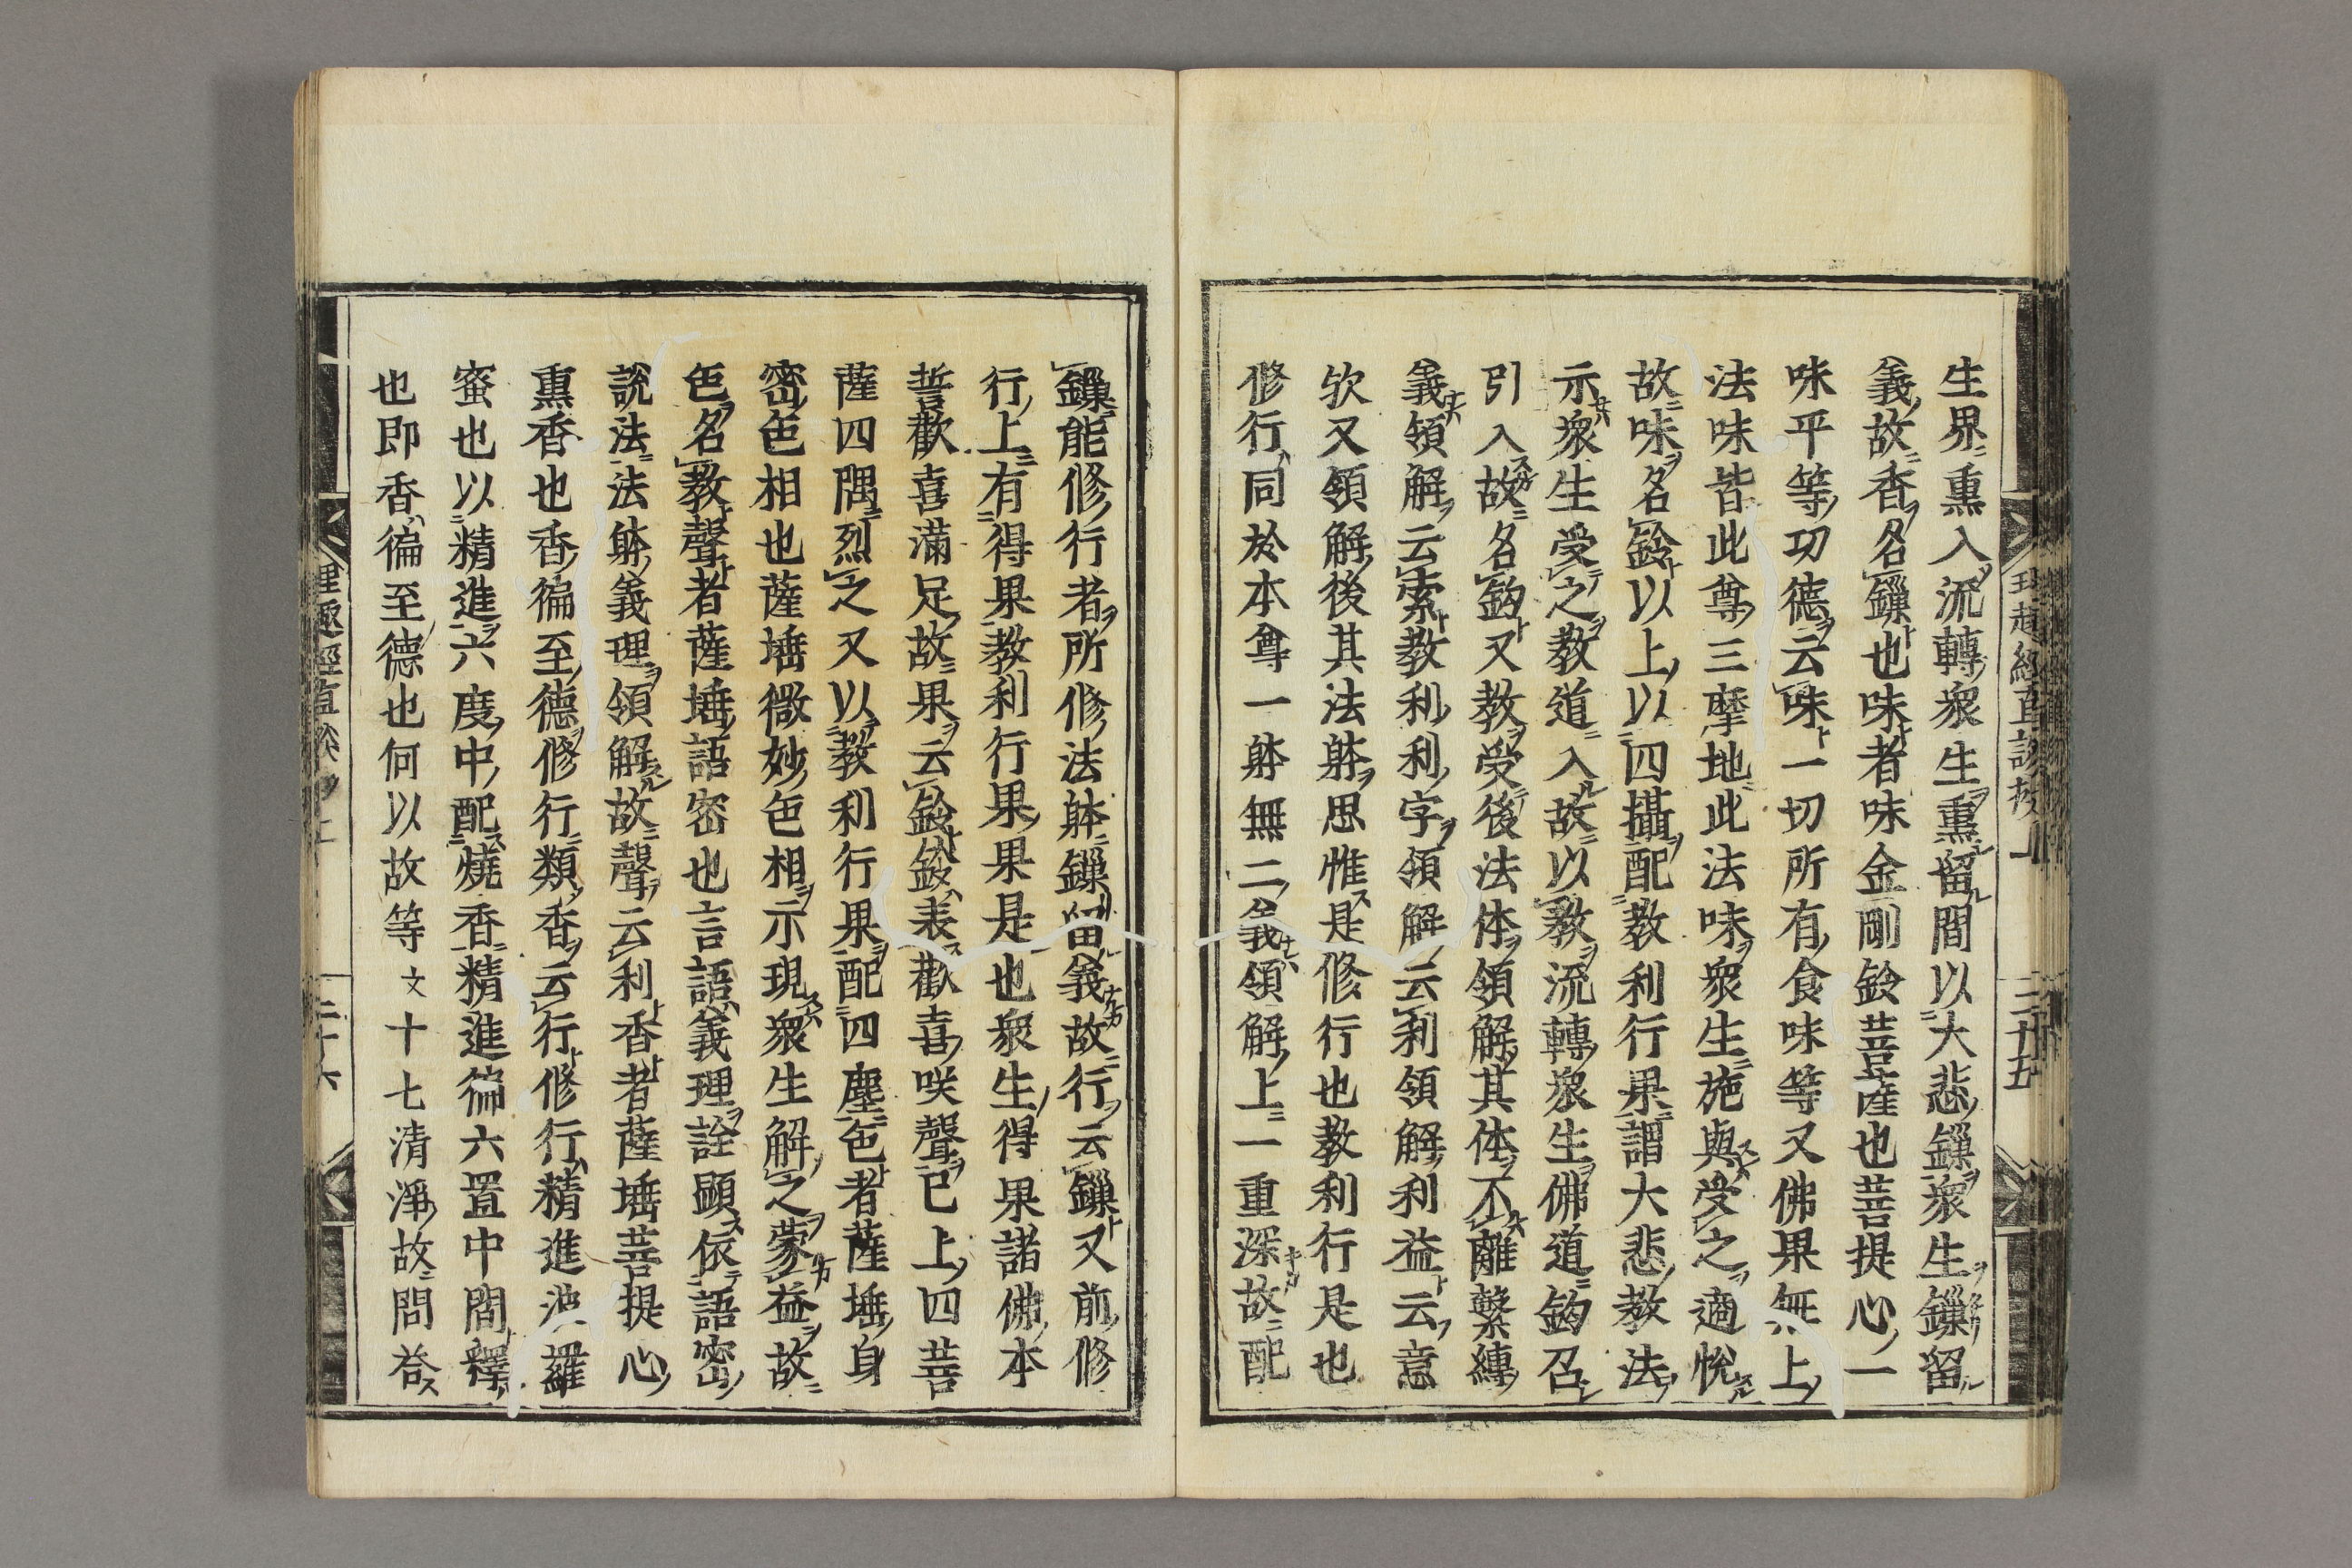 生界熏入流轉衆生熏留間以大悲鏁衆生鏁留
義故香名鏁也味者味金剛鈴菩薩也菩提心一
味平等功德云味一切所有食味等又佛果無上
法味皆此尊三摩地此法味衆生施與受之適悅
故味名鈴以上以四攝配教利行果謂大悲教法
示衆生受之教道入故以教流轉衆生佛道鈎召
引入故名鈎又教受後法体領解其体不離繫縛
義領解云索教利利字領解云利領解利益云意
欤又領解後其法躰思惟是修行也教利行是也
修行同於本尊一躰無二義領解上一重深故配
鏁能修行者所修法躰鏁留義故行云鏁又前修
行上有得果教利行果果是也衆生得果諸佛本
誓歡喜滿足故果云鈴鈴表歡喜咲聲已上四菩
薩四隅烈之又以教利行果配四塵色者薩埵身
密色相也薩埵微妙色相示現衆生解之蒙益故
色名教聲者薩埵語密也言語義理詮顯依語密
說法法躰義理領解故聲云利香者薩埵菩提心
熏香也香徧至德修行類香云行修行精進波羅
蜜也以精進六度中配燒香精進徧六置中間釋
也即香徧至德也何以故等文十七清淨故問荅
理趣經直談鈔上 二十五
理趣經直談鈔上 二十六